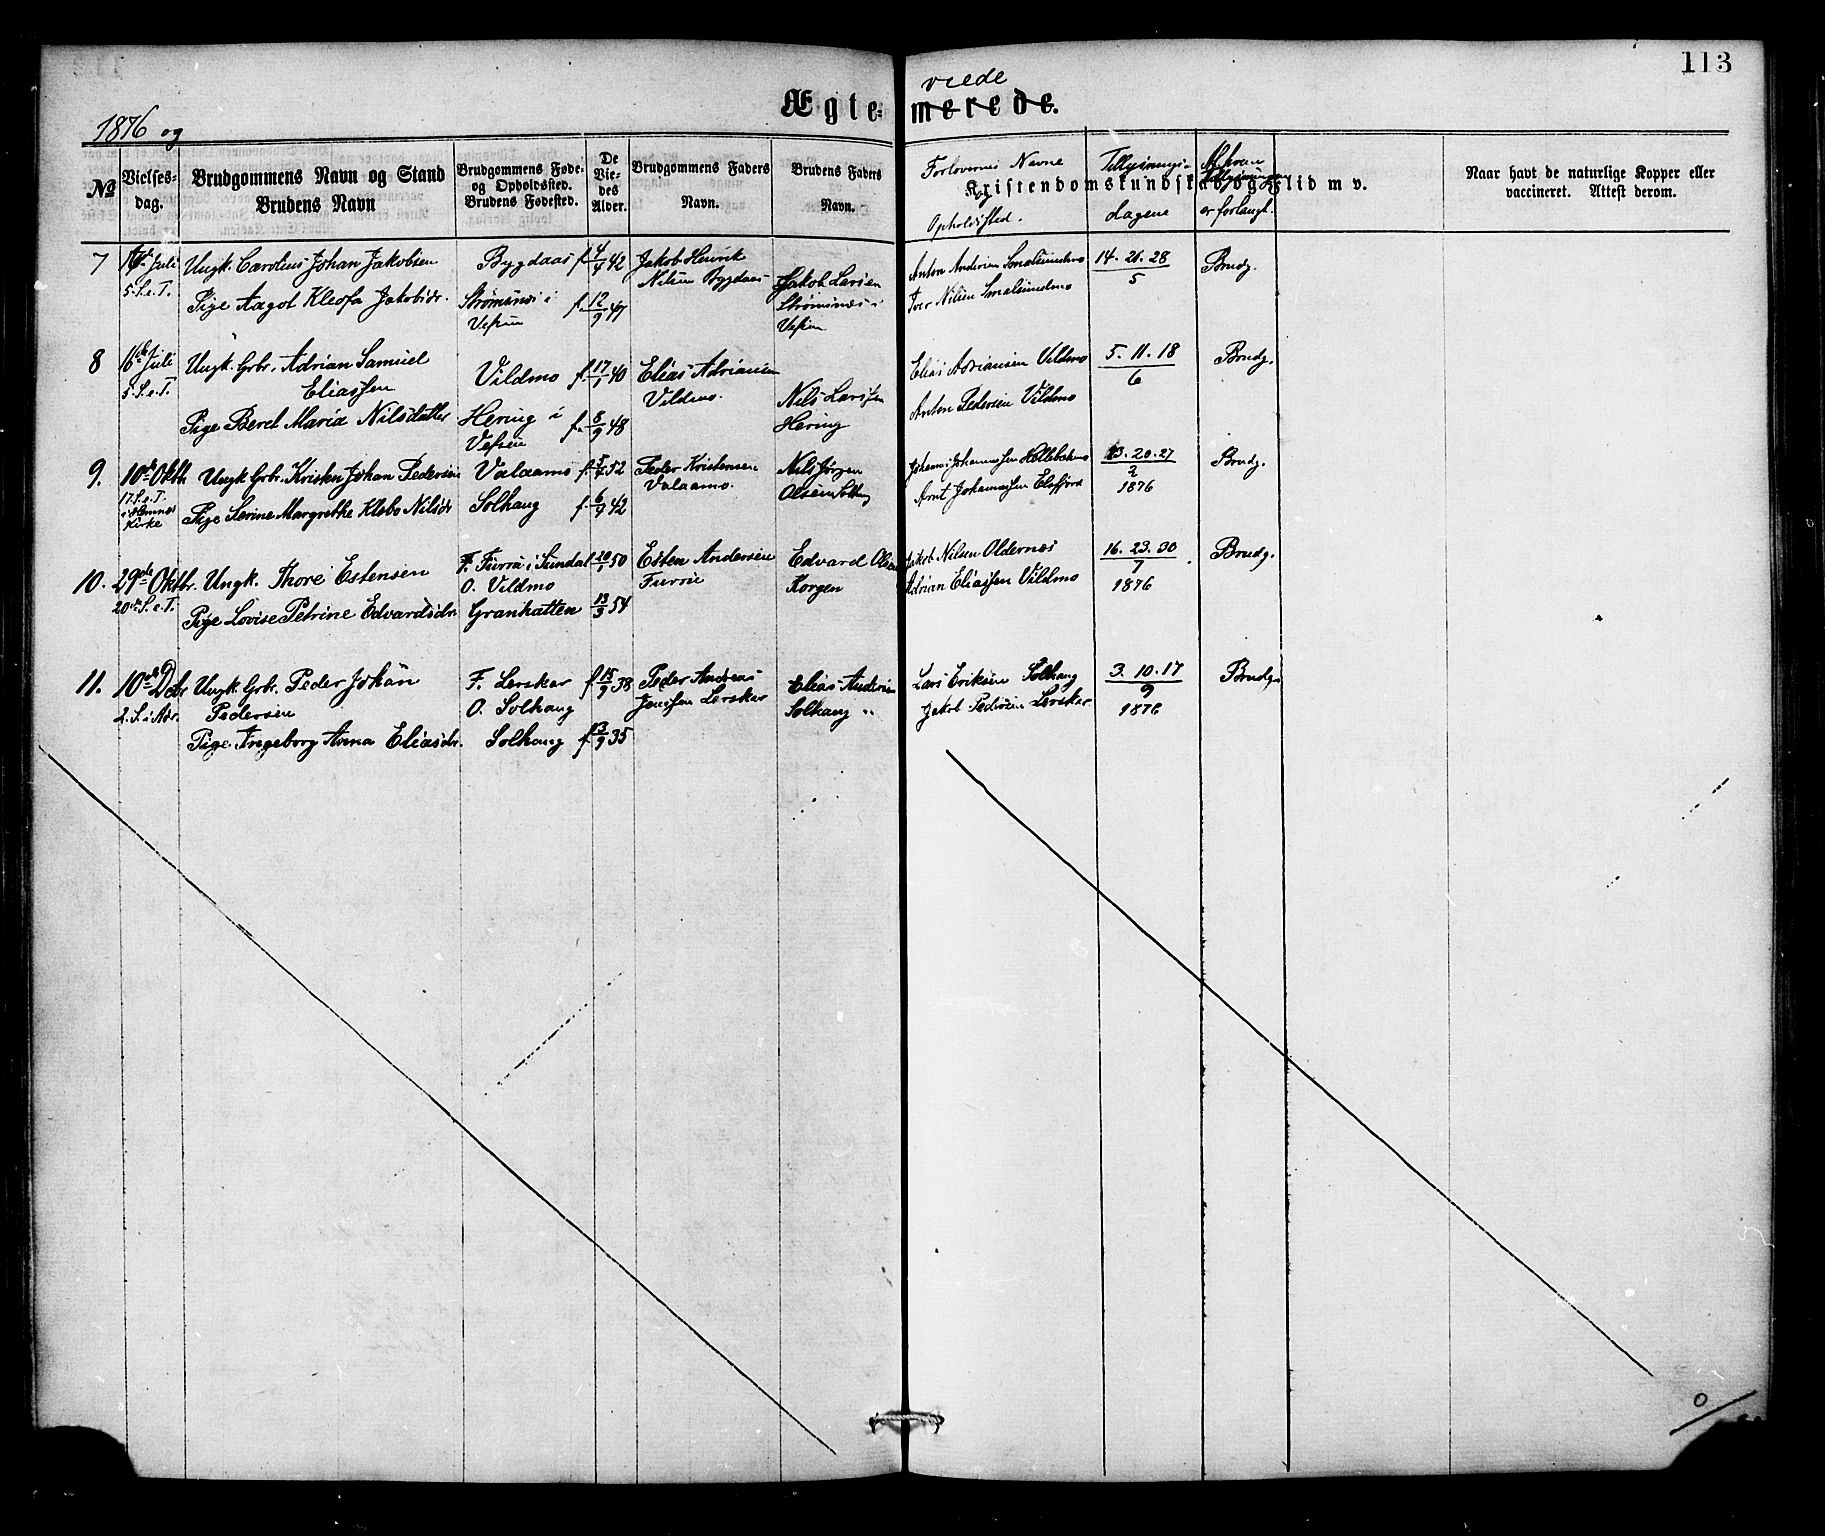 113
1876 og
Ægte- viede
merede.
No
Vielses-
dag.
Brudgommens Navn og Stand
Brudens Navn
Brudgommens Føde-
og Opholdssted.
Brudens Fødested.
De
Vie-
des
Alder.
Brudgommens Faders
Navn.
Brudens Faders
Navn.
Forlovernes Navne
og
Opholdssted.
Kristendomskundskab og Flid m. v.
Tillysnings-
dagene
Af hvem
Tillysningen
er forlangt.
Naar havt de naturlige Kopper eller
vaccineret. Attest derom.
7 16de Juli Ungk. Carolius Johan Jakobsen Bygdaas f. 4/7 42 Jakob Henrik
Nilsen Bygdaas
Anton Andersen Smalsundmo 14. 21. 28 Brudg.
5
5 S. e. T. Pige Aagot Kleofa Jakobsdr. Strømsnes i
Vefsen
f. 12/9 47 Jakob Larsen
Strømsnes i
Vefsen
Iver Nilsen Smalsundmo
8 16de Juli Ungk. Grbr. Adrian Samuel
Eliassen
Vildmo f. 17/1 40 Elias Adriansen
Vildmo.
Elias Adriansen Vildmo 5. 11. 18 Brudg.
6
5 S. e. T. Pige Berel Maria Nilsdatter Hering i
Vefsen
f. 8/9 48 Nils Larssen
Hering
Anton Pedersen Vildmo
9. 10de Oktb Ungk. Grbr. Kristen Johan Pedersen Valaamo f. 52 Peder Kristensen
Valaamo.
Nils Jörgen
Olsen Solhaug
Johannes Johannessen 13. 20. 27 Brudg.
1876
17. S. e. T.
i
Kirke
Pige Serine Margrethe Klebo Nilsdr Solhaug f. 6/9 42
Arnt Johannessen Elsfjord
10. 29de Oktbr. Ungk. Thore Estensen F. Furru i Sundal 20/1 50 Esten Andersen
Furru
Edvard Olsen
Korgen
Jakob Nilsen Oldernæs 16. 23. 30 Brudg.
7
1876
O. Vildmo
Adrian Eliassen Vildmo
20de S. e. T. Pige Lovise Petrine Edvardsdr. Granhatten 13/3 54
11. 10de Dcbr Ungk. Grbr. Peder Johan
Pedersen
F. Lerskar
O. Solhaug
f. 15/9 38 Peder Andreas
Jenssen Lerskar
Elias Andersen
Solhaug "
Lars Eriksen Solhaug
Jakob Pedersen Lerskar
3. 10. 17 Brudg.
9
1876
2. S. i Adv. Pige Ingeborg Anna Eliasdr. Solhaug f. 13/9 35
0